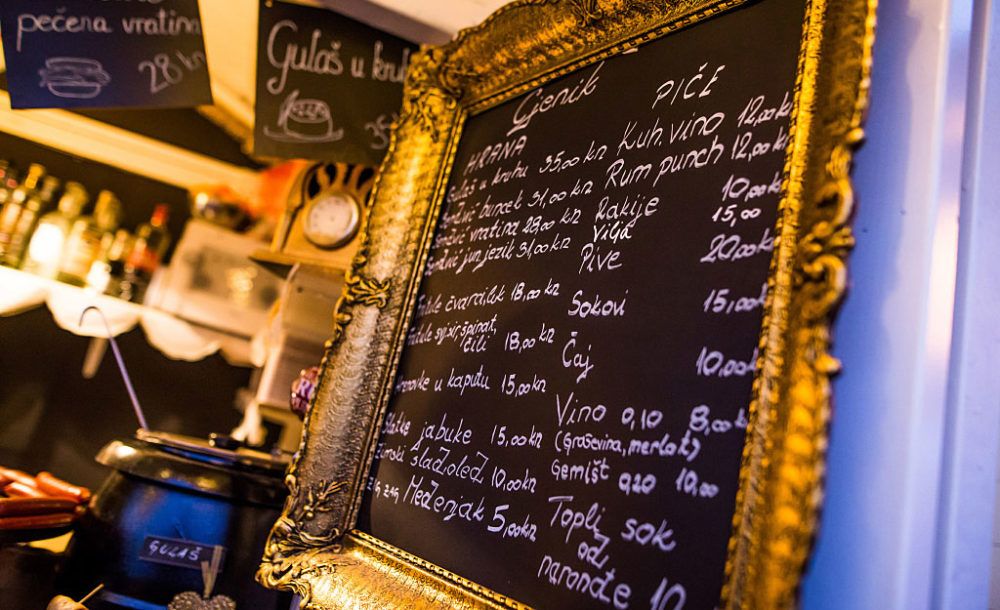 pečena vratina
28 kn
Gulaš u kruhu
35
Cjenik
HRANA
Gulaš u kruhu 35,00 kn
buncek 31,00 kn
vratina 28,00 kn
jun. jezik 31,00 kn
čvaraluk 18,00 kn
svj. sir, špinat,
čili 18,00 kn
u kaputu 15,00 kn
jabuke 15,00 kn
sladoled 10,00 kn
Medenjak 5,00 kn
PIČE
Kuh. vino 12,00 kn
Rum punch 12,00 kn
Rakije 10,00 kn
Vilja 15,00
Pive 20,00 kn
Sokovi 15,00 kn
Čaj 10,00 kn
Vino 0,10 8,00 kn
(Graševina, merlot)
Gemišt 0,20 10,00
Topli sok
od
naranđe 10
GULAŠ